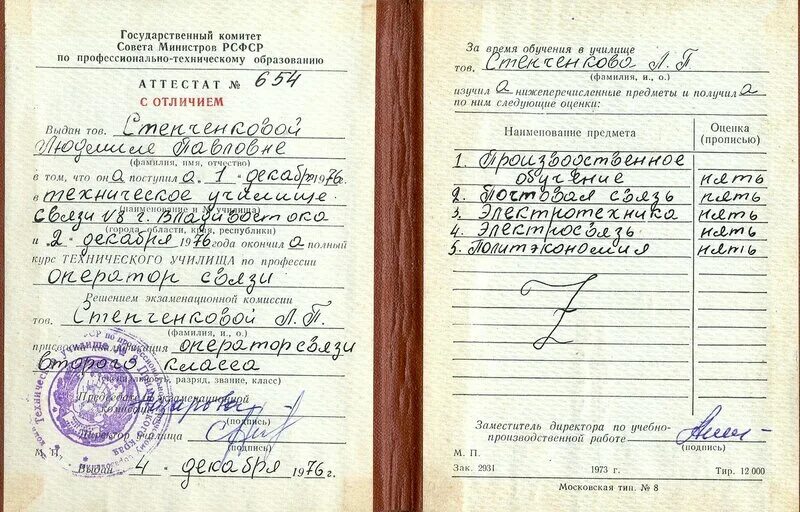 Государственный комитет
Совета Министров РСФСР
по профессионально-техническому образованию
АТТЕСТАТ № 654
С ОТЛИЧИЕМ
Выдан тов. Стенченковой
Людмиле Павловне
(фамилия, имя, отчество)
в том, что она поступила 1 декабря 1976г.
в техническое училище
(наименование и № училища)
связи №8 г. Владивостока
(города, области, края, республики)
и 2 декабря 1976 года окончила полный
курс ТЕХНИЧЕСКОГО УЧИЛИЩА по профессии
оператор связи
Решением экзаменационной комиссии
тов. Стенченковой Л. П.
(фамилия, и., о.)
присвоена квалификация оператор связи
второго класса
(специальность, разряд, звание, класс)
Председатель экзаменационной
комиссии
(подпись)
Директор училища
(подпись)
М. П.
Выдан 4 декабря 1976 г.
За время обучения в училище
тов. Стенченкова Л. П.
(фамилия, и., о.)
изучила нижеперечисленные предметы и получила
по ним следующие оценки:
Наименование предмета Оценка (прописью)
1. Производственное
обучение пять
2. Почтовая связь пять
3. Электротехника пять
4. Электросвязь пять
5. Политэкономия пять
Z
Заместитель директора по учебно-
производственной работе
(подпись)
М. П.
Зак. 2931 1973 г. Тир. 12 000
Московская тип. № 8